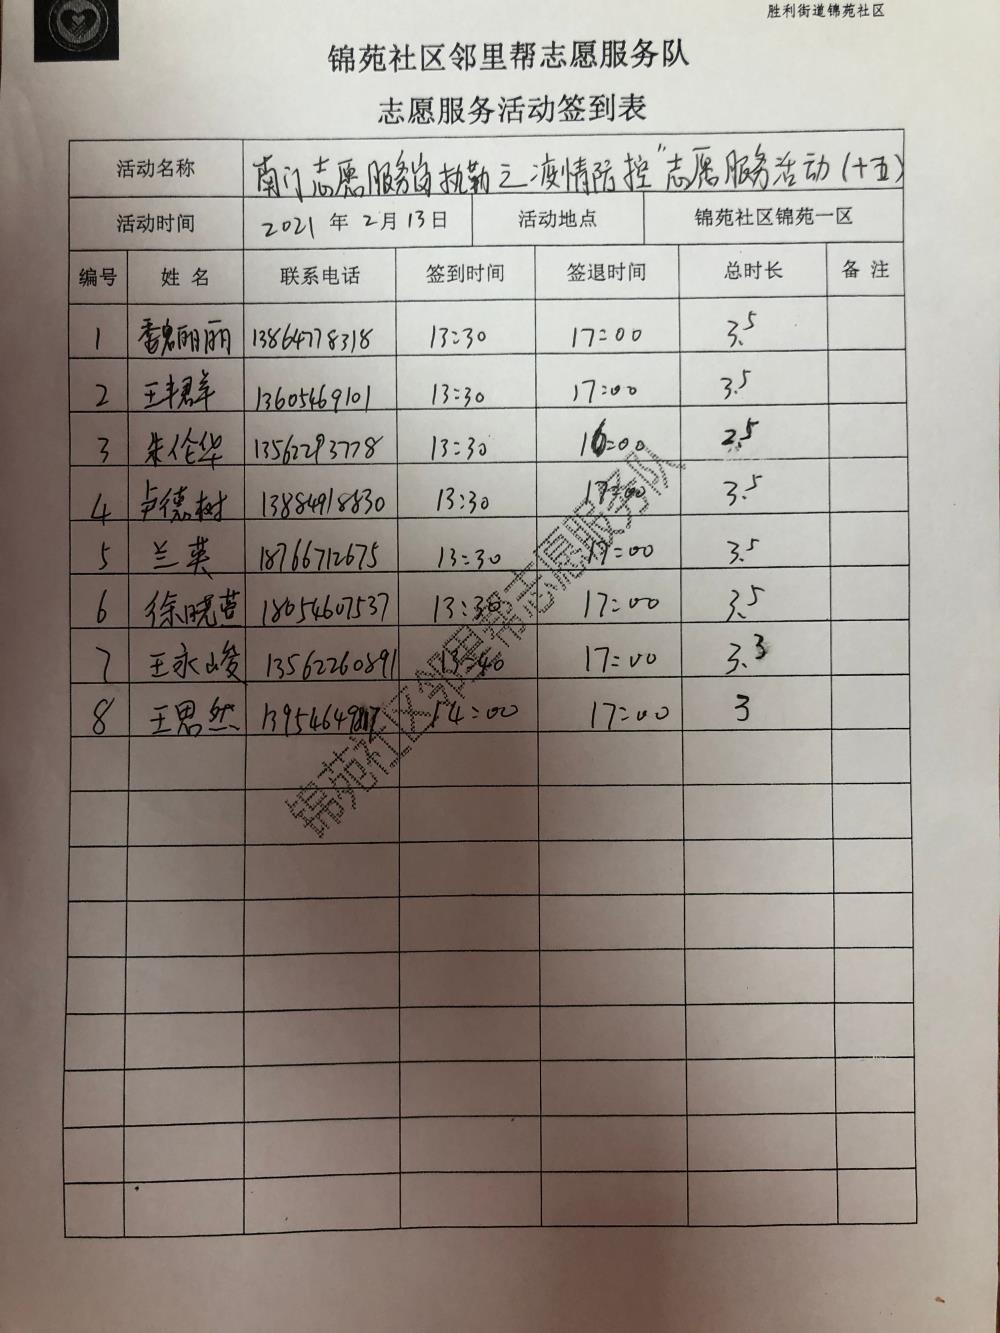 胜利街道锦苑社区
锦苑社区邻里帮志愿服务队
志愿服务活动签到表
活动名称 南门志愿服务岗执勤之疫情防控"志愿服务活动(十五)
活动时间 2021年2月13日 活动地点 锦苑社区锦苑一区
编号 姓名 联系电话 签到时间 签退时间 总时长 备注
1 魏丽丽 13864778318 13:30 17:00 3.5
2 王群 13605469101 13:30 17:00 3.5
3 朱伦华 13562293778 13:30 16:00 2.5
4 卢德树 13884918830 13:30 17:00 3.5
5 兰英 18766712675 13:30 17:00 3.5
6 徐晓萱 18054607537 13:30 17:00 3.5
7 王永峻 13562260891 13:40 17:00 3.3
8 王思然 17:00 3
14:00
锦苑社区邻里帮志愿服务队